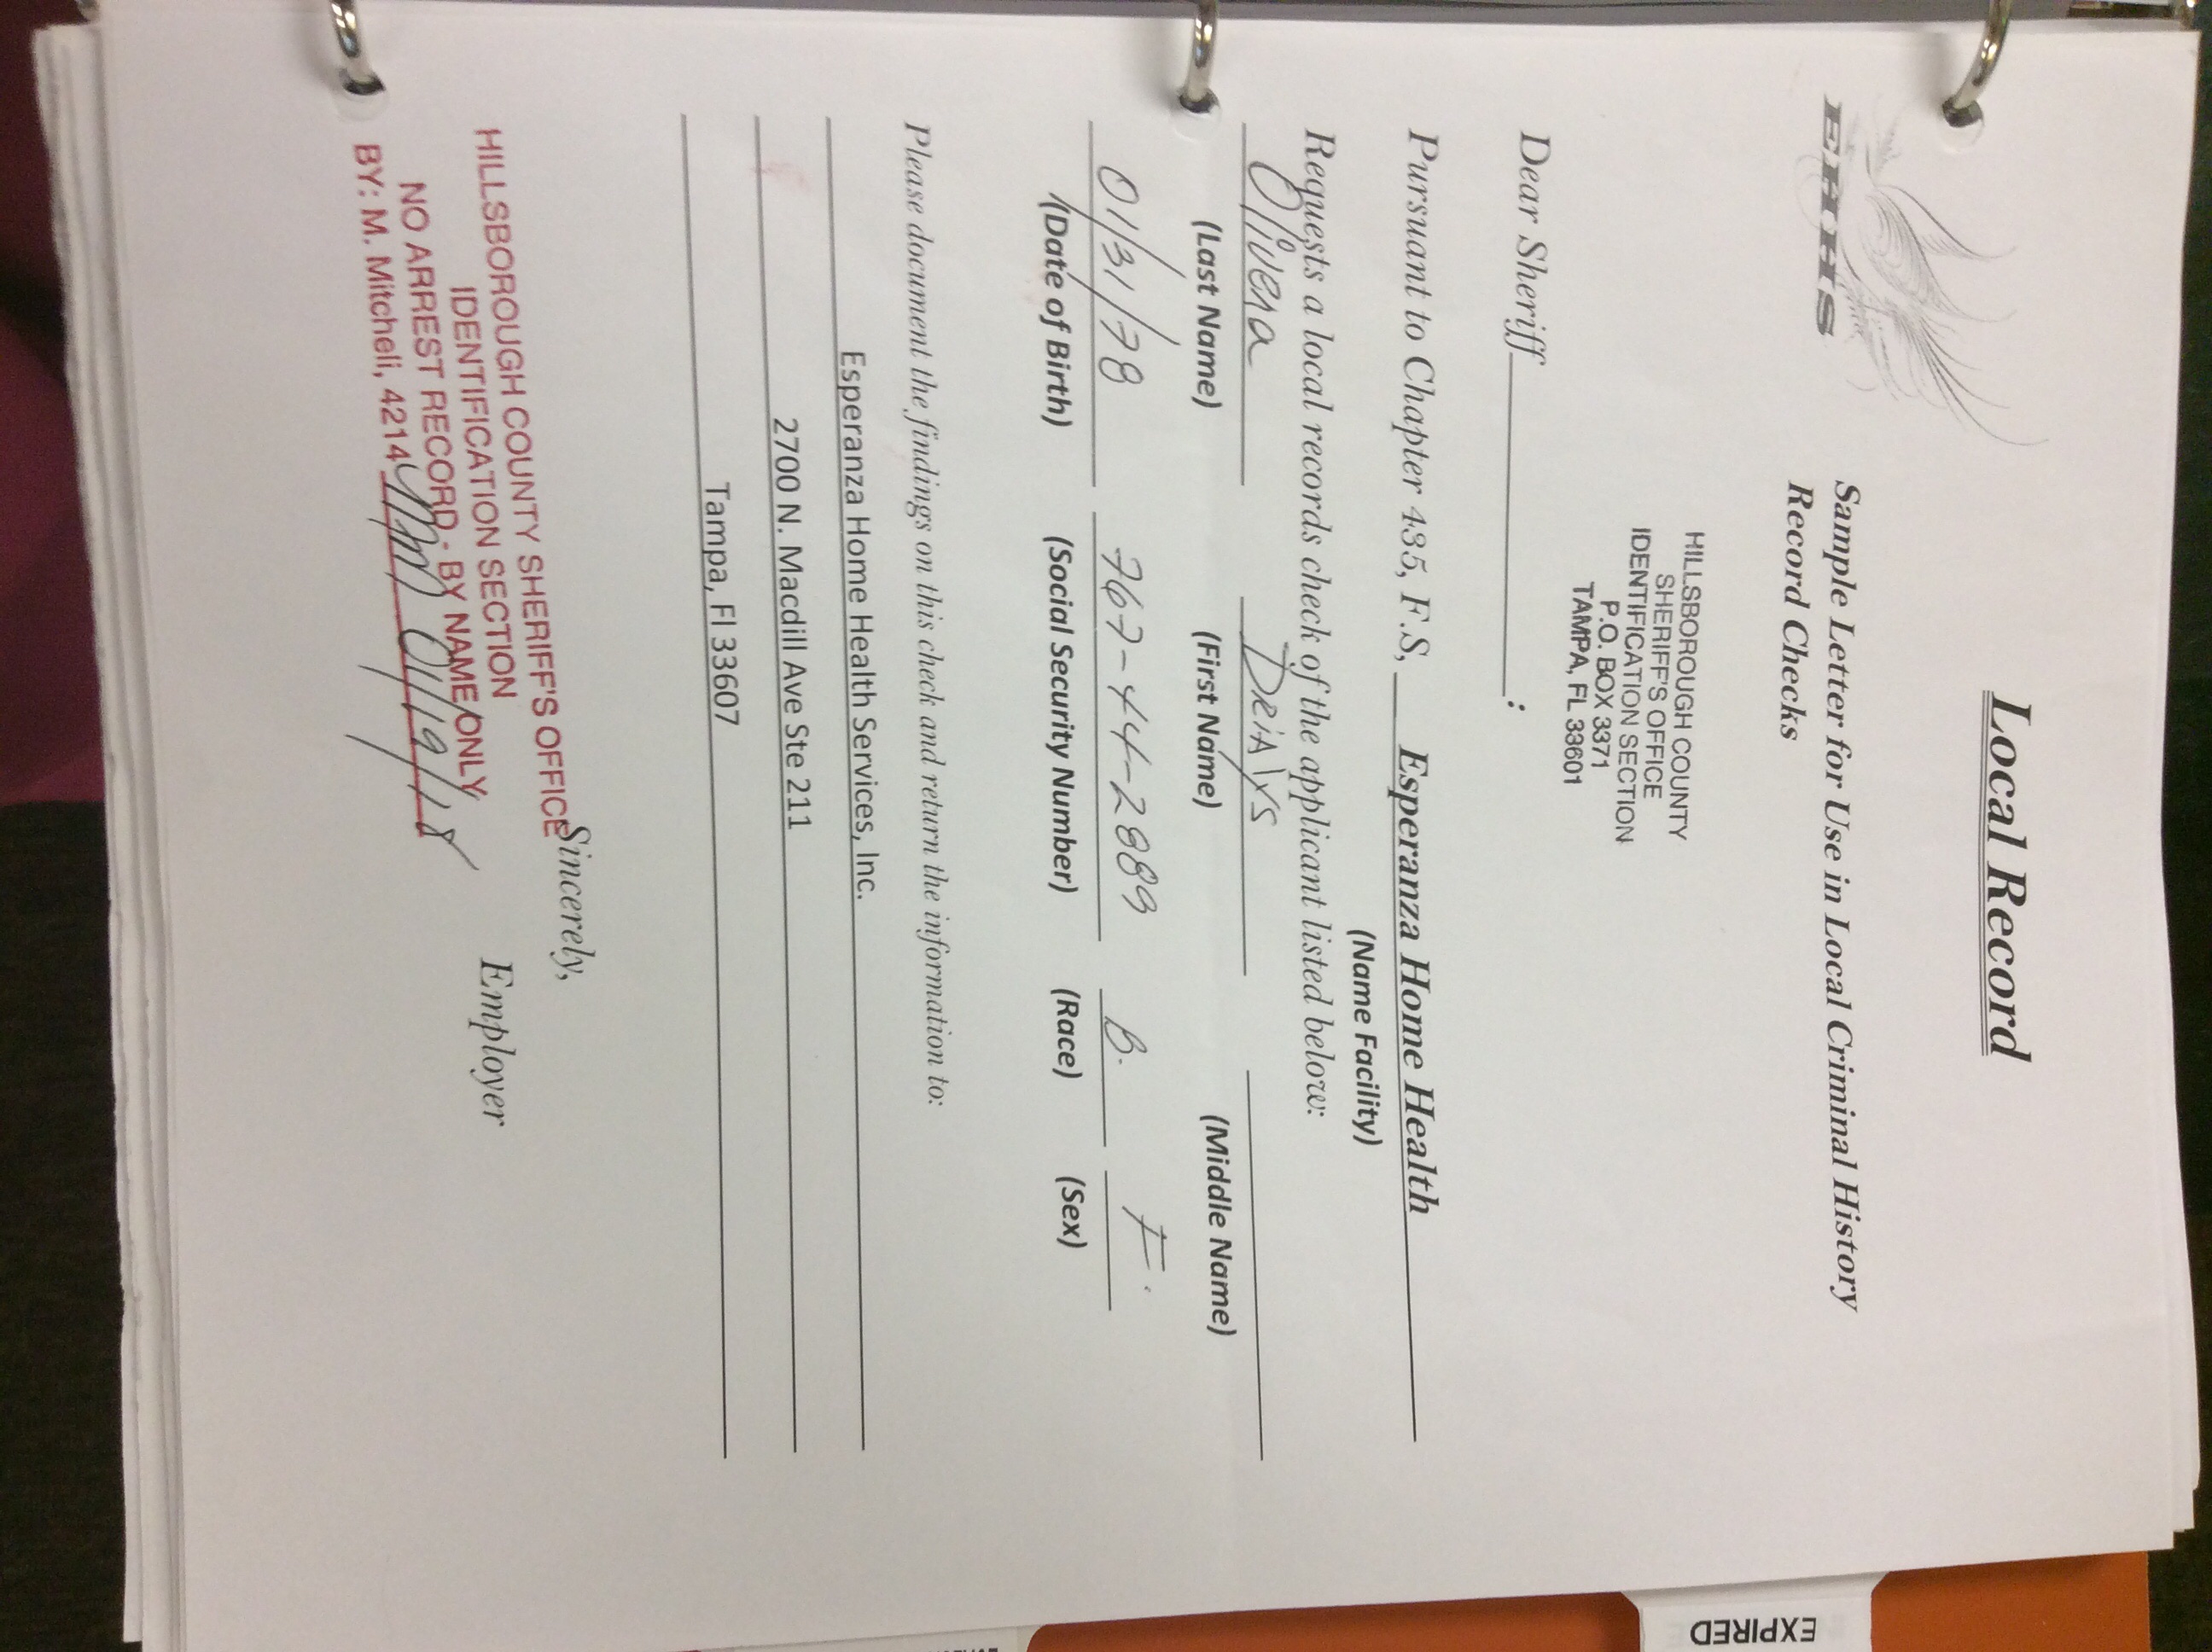 EXPIRED
Local Record
EHHS
Sample Letter for Use in Local Criminal History
Record Checks
HILLSBOROUGH COUNTY
SHERIFF'S OFFICE
IDENTIFICATION SECTION
P.O. BOX 3371
TAMPA, FL 33601
Dear Sheriff :
Pursuant to Chapter 435, F.S, Esperanza Home Health
(Name Facility)
Requests a local records check of the applicant listed below:
Olivera
(Last Name) (First Name) (Middle Name)
01/31/78 767-44-2889 B. F.
(Date of Birth) (Social Security Number) (Race) (Sex)
Please document the findings on this check and return the information to:
Esperanza Home Health Services, Inc.
2700 N. Macdill Ave Ste 211
Tampa, Fl 33607
Sincerely,
Employer
HILLSBOROUGH COUNTY SHERIFF'S OFFICE
IDENTIFICATION SECTION
NO ARREST RECORD - BY NAME ONLY
BY: M. Mitchell, 4214 MM 01/19/18